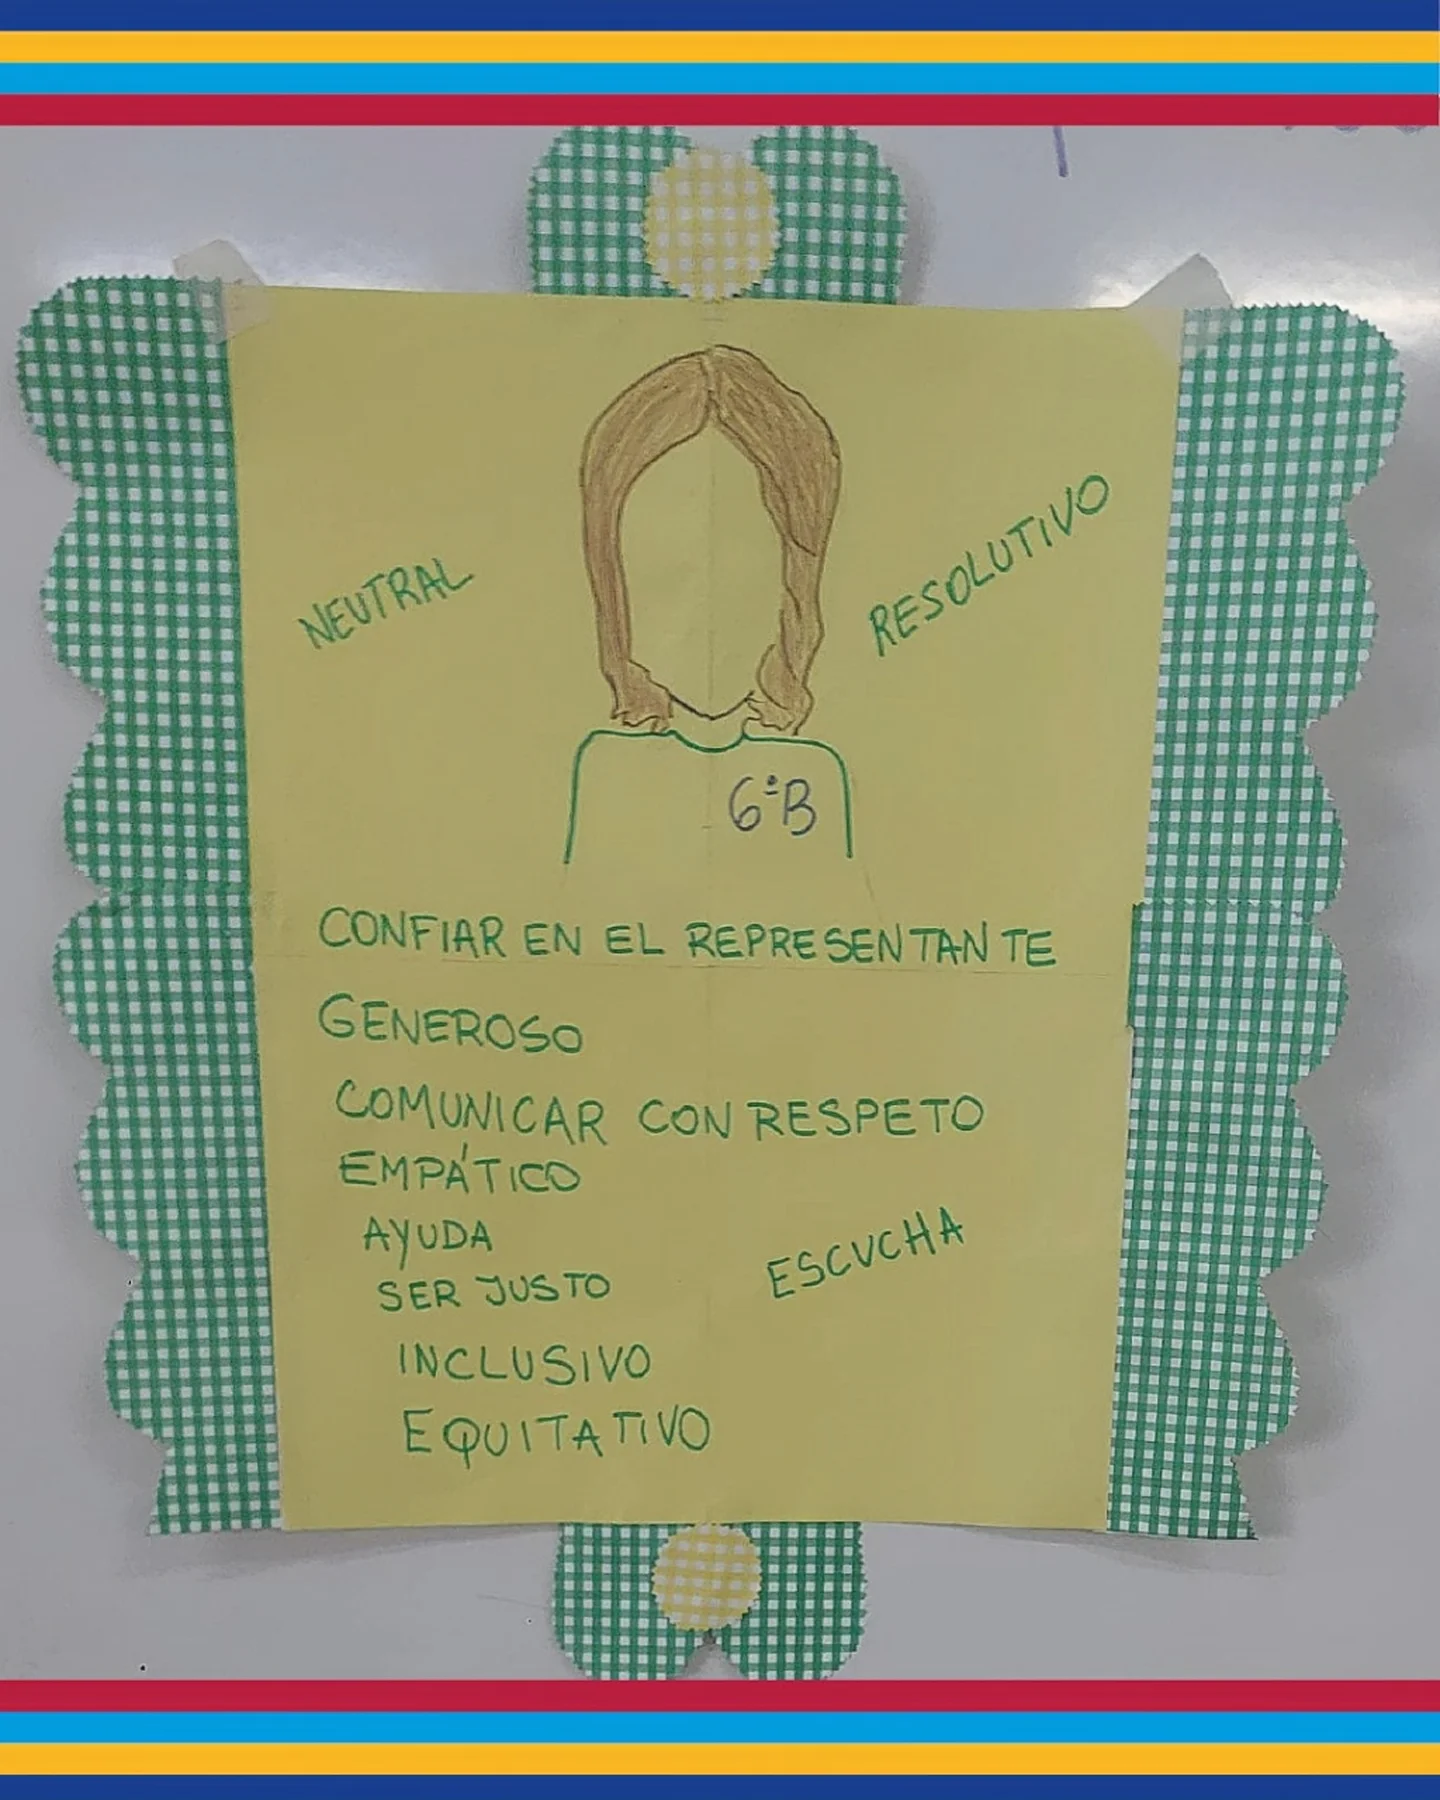 NEUTRAL
RESOLUTIVO
6ºB
CONFIAR EN EL REPRESENTANTE
GENEROSO
COMUNICAR CON RESPETO
EMPÁTICO
AYUDA
SER JUSTO
ESCUCHA
INCLUSIVO
EQUITATIVO